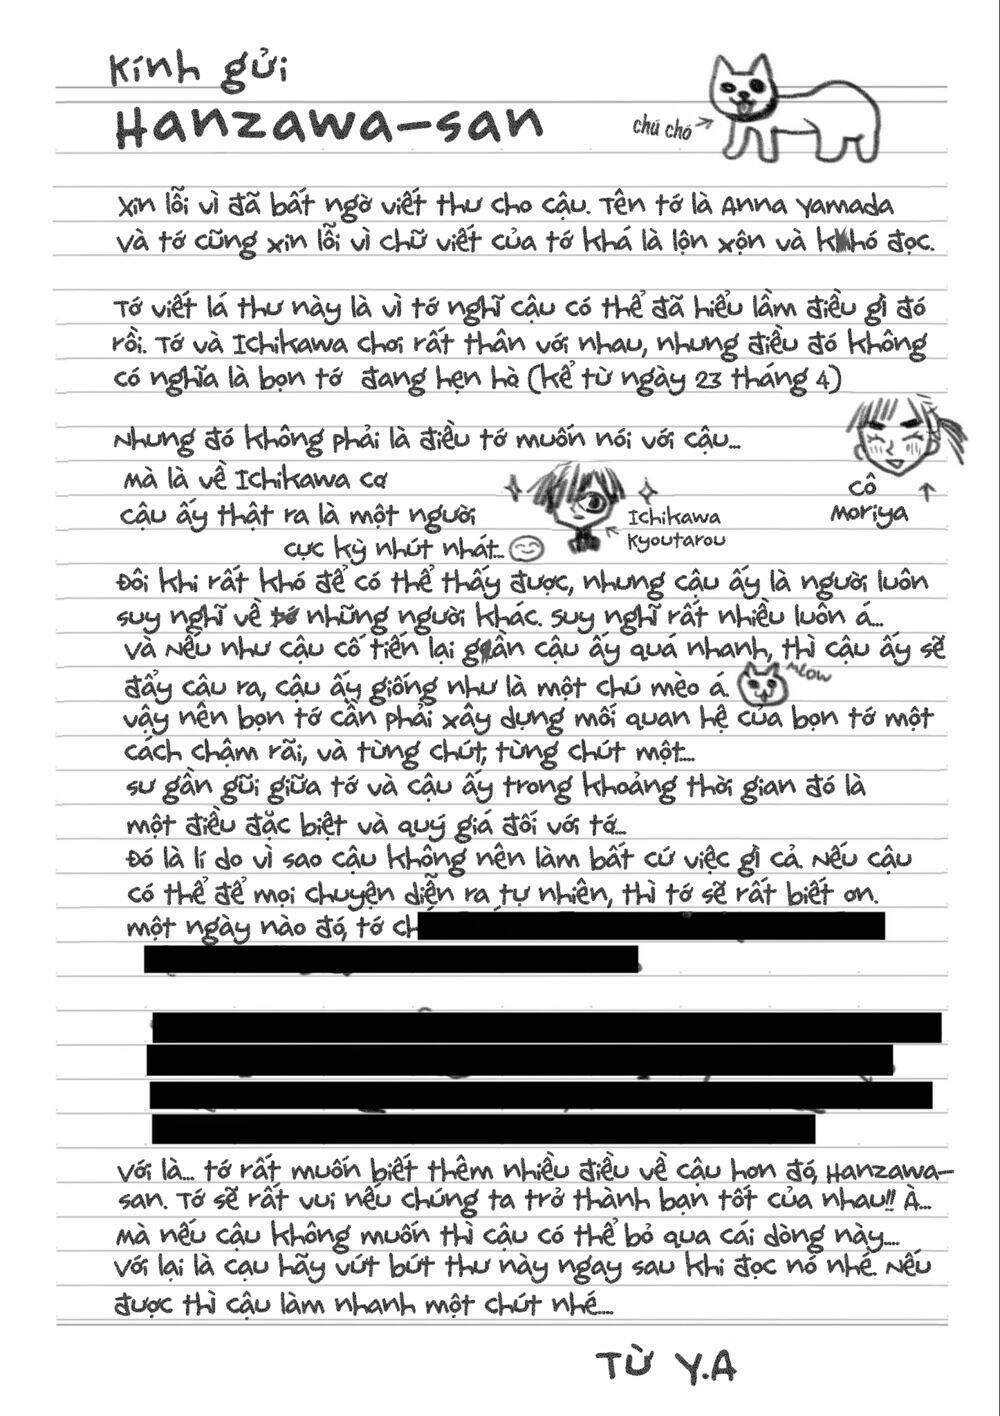 Kính gửi
Hanzawa-san
chú chó
Xin lỗi vì đã bất ngờ viết thư cho cậu. Tên tớ là Anna Yamada
và tớ cũng xin lỗi vì chữ viết của tớ khá là lộn xộn và khó đọc.
Tớ viết lá thư này là vì tớ nghĩ cậu có thể đã hiểu lầm điều gì đó
rồi. Tớ và Ichikawa chơi rất thân với nhau, nhưng điều đó không
có nghĩa là bọn tớ đang hẹn hò (kể từ ngày 23 tháng 4)
Nhưng đó không phải là điều tớ muốn nói với cậu...
mà là về Ichikawa cơ
cậu ấy thật ra là một người
cực kỳ nhút nhát...
Ichikawa
Kyoutarou
cô
Moriya
Đôi khi rất khó để có thể thấy được, nhưng cậu ấy là người luôn
suy nghĩ về những người khác. suy nghĩ rất nhiều luôn á...
và Nếu như cậu cố tiến lại gần cậu ấy quá nhanh, thì cậu ấy sẽ
đẩy cậu ra, cậu ấy giống như là một chú mèo á.
meow
vậy nên bọn tớ cần phải xây dựng mối quan hệ của bọn tớ một
cách chậm rãi, và từng chút, từng chút một....
sư gần gũi giữa tớ và cậu ấy trong khoảng thời gian đó là
một điều đặc biệt và quý giá đối với tớ...
Đó là lí do vì sao cậu không nên làm bất cứ việc gì cả. Nếu cậu
có thể để mọi chuyện diễn ra tự nhiên, thì tớ sẽ rất biết ơn.
một ngày nào đó, tớ ch
Với là... tớ rất muốn biết thêm nhiều điều về cậu hơn đó, Hanzawa-
san. Tớ sẽ rất vui nếu chúng ta trở thành bạn tốt của nhau!! À...
mà nếu cậu không muốn thì cậu có thể bỏ qua cái dòng này....
Với lại là cạu hãy vứt bứt thư này ngay sau khi đọc nó nhé. Nếu
được thì cậu làm nhanh một chút nhé....
Từ Y.A